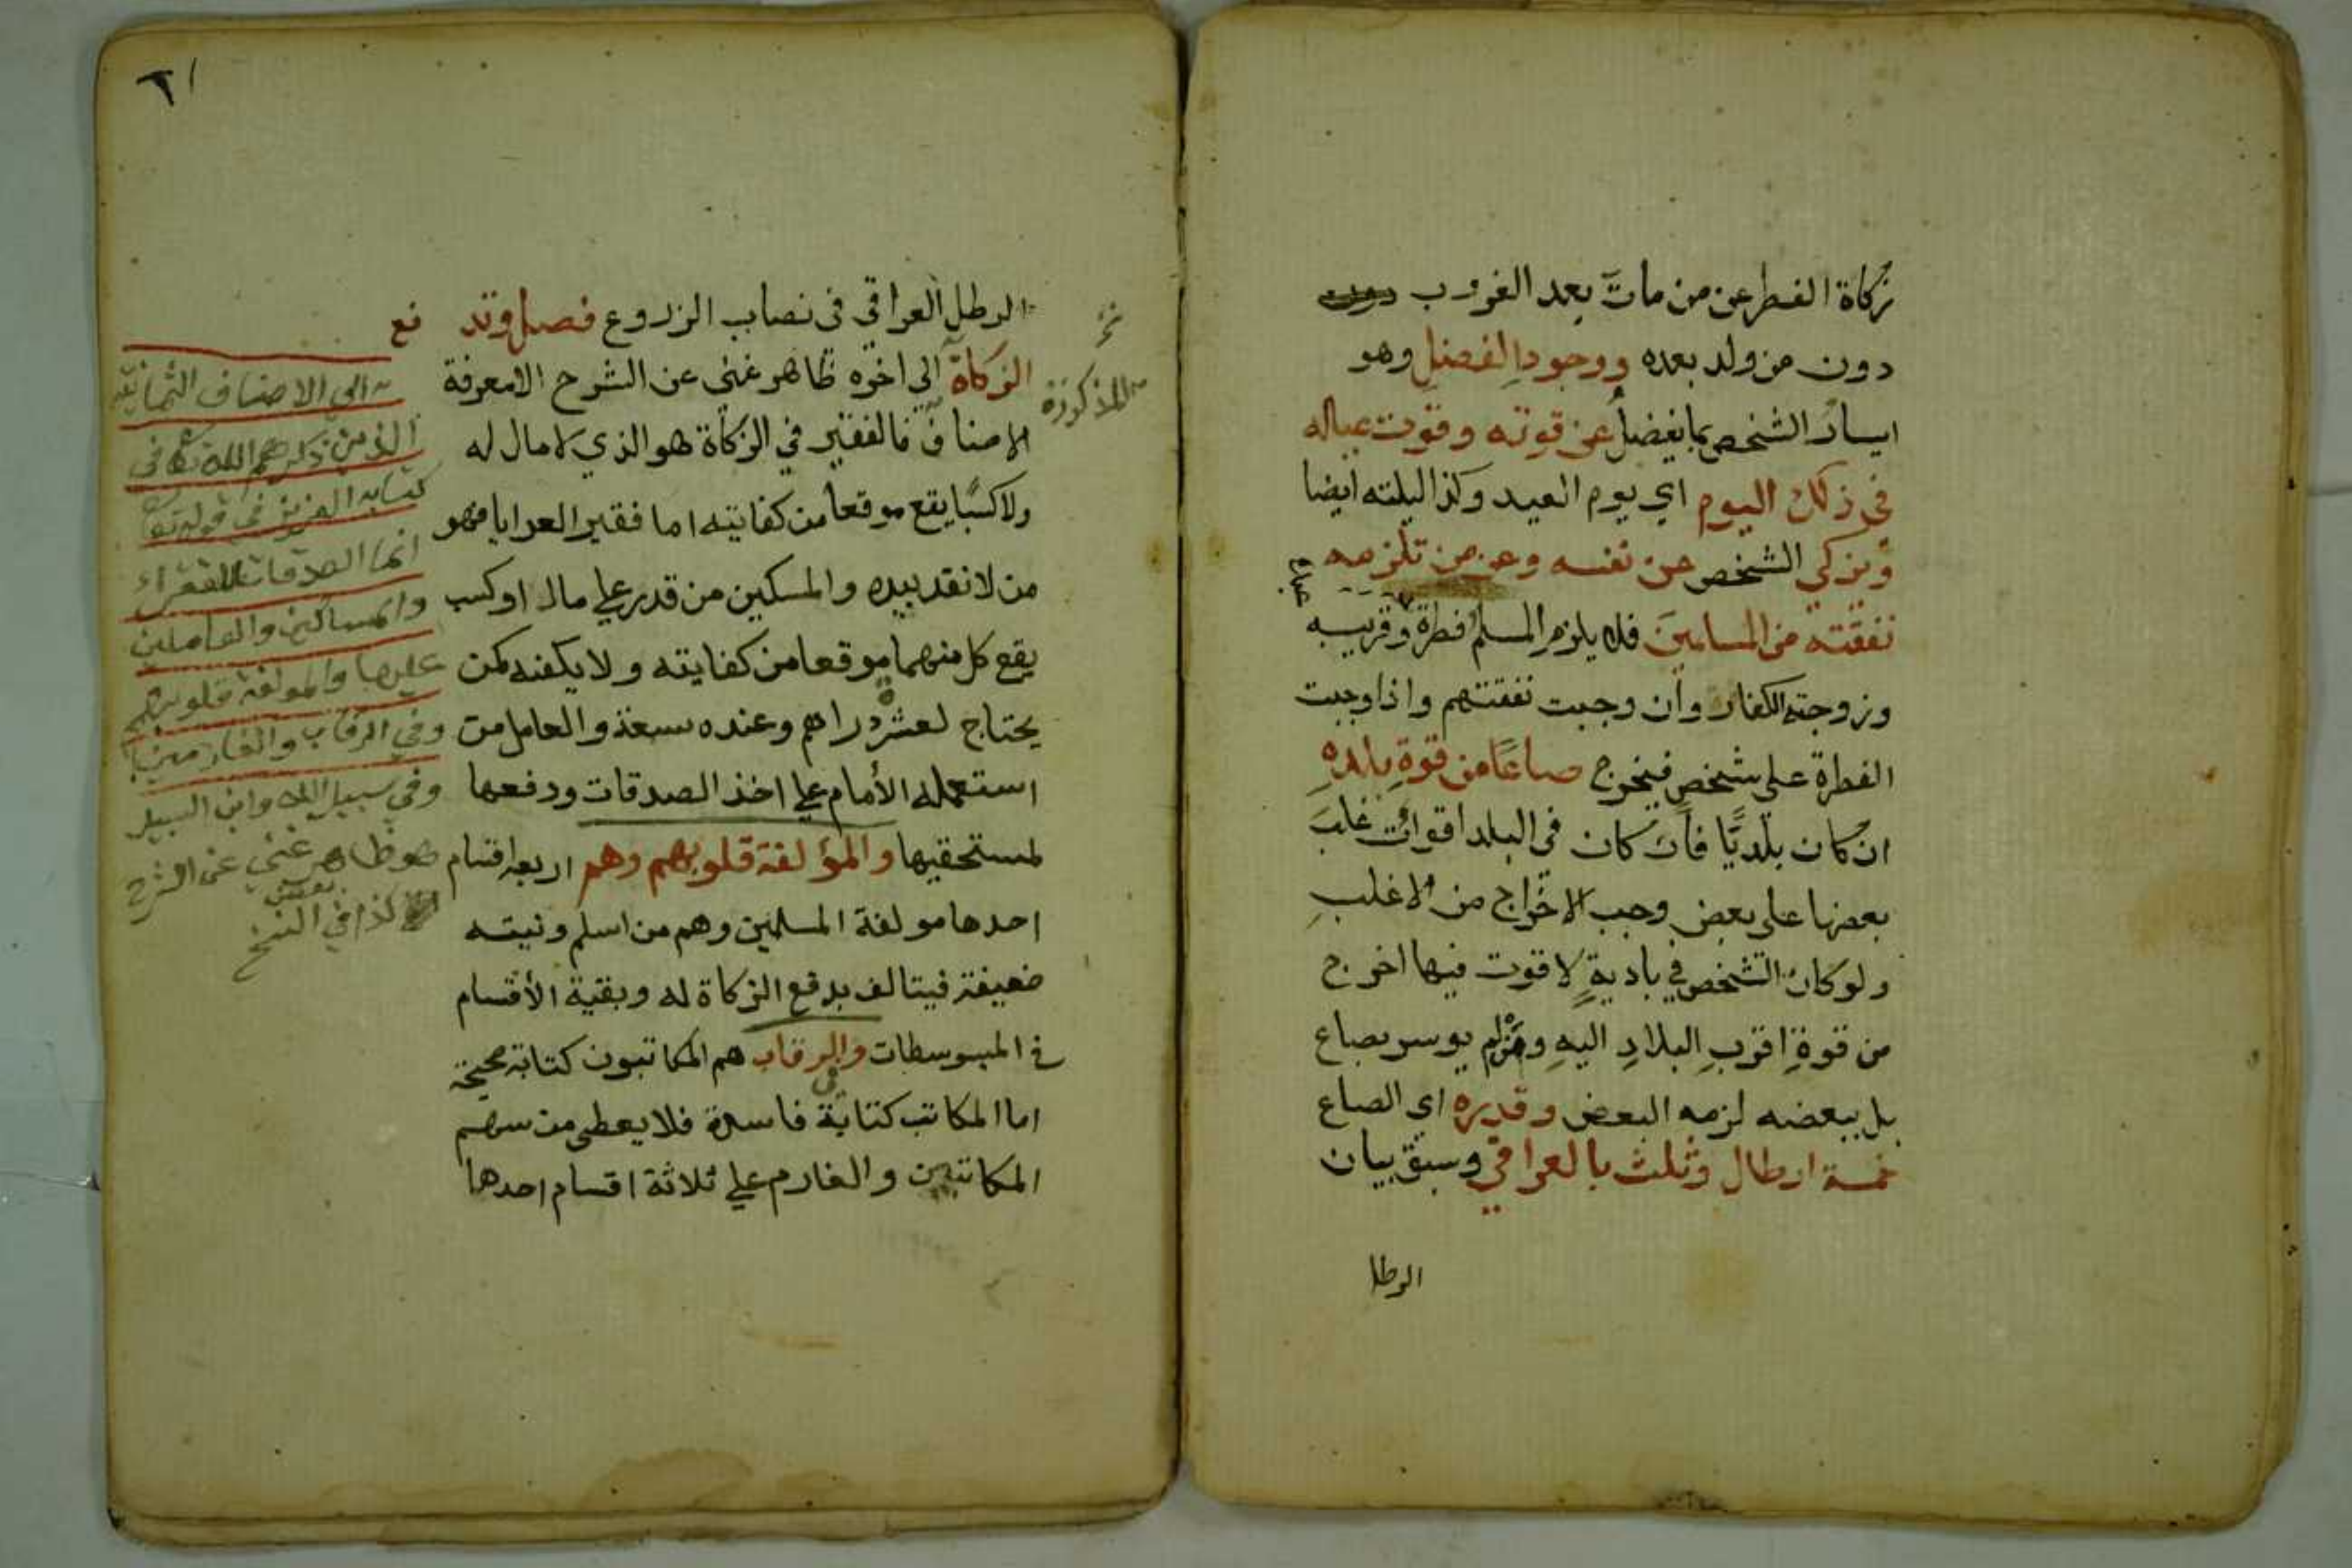 زكاة الفطر عن من مات بعد الغروب
دون من ولد بعده ووجود الفضل وهو
ايسار الشخص بما يفضل عن قوته وقوت عياله
في ذلك اليوم اي يوم العيد وكذا ليلته ايضا
ويزكي الشخص عن نفسه وعن من تلزمه
نفقته من المسلمين فلا يلزم المسلم فطرة وقريبه
وزوجته الكفار وان وجبت نفقتهم واذا وجبت
الفطرة على شخص فيخرج صاعا من قوة بلده
ان كان بلديا فان كان في البلد اقوات غلب
بعضها على بعض وجب الاخراج من الاغلب
ولو كان الشخص في بادية لا قوت فيها اخرج
من قوة اقرب البلاد اليه ومن لم يوسر بصاع
بل ببعضه لزمه البعض وقدره اي الصاع
خمسة ارطال وثلث بالعراقي وسبق بيان
الرطل
٦١
الرطل العراقي في نصاب الزروع فصل وتدفع
الزكاة الى اخره ظاهر غني عن الشرح الا معرفة
الاصناف فالفقير في الزكاة هو الذي لا مال له
ولا كسبا يقع موقعا من كفايته اما فقير العرايا فهو
من لا نقد بيده والمسكين من قدر على مال او كسب
يقع كل منهما موقعا من كفايته ولا يكفيه كمن
يحتاج لعشرة دراهم وعنده سبعة والعامل من
استعمله الأمام على اخذ الصدقات ودفعها
لمستحقيها والمؤلفة قلوبهم وهم اربعه اقسام
احدها مولفة المسلمين وهم من اسلم ونيته
ضعيفة فيتالف بدفع الزكاة له وبقية الأقسام
في المبسوطات والرقاب هم المكاتبون كتابة صحيحة
اما المكاتب كتابة فاسدة فلا يعطى من سهم
المكاتبين والغارم على ثلاثة اقسام احدها
المذكورة
الى الاصناف الثمانية
الذين ذكرهم الله تعا في
كتابه العزيز في قوله تعا
انما الصدقات للفقراء
والمساكين والعاملين
عليها والمولفة قلوبهم
وفي الرقاب والغارمين
وفي سبيل الله وابن السبيل
هو ظاهر غني عن الشرح
كذا في بعض النسخ